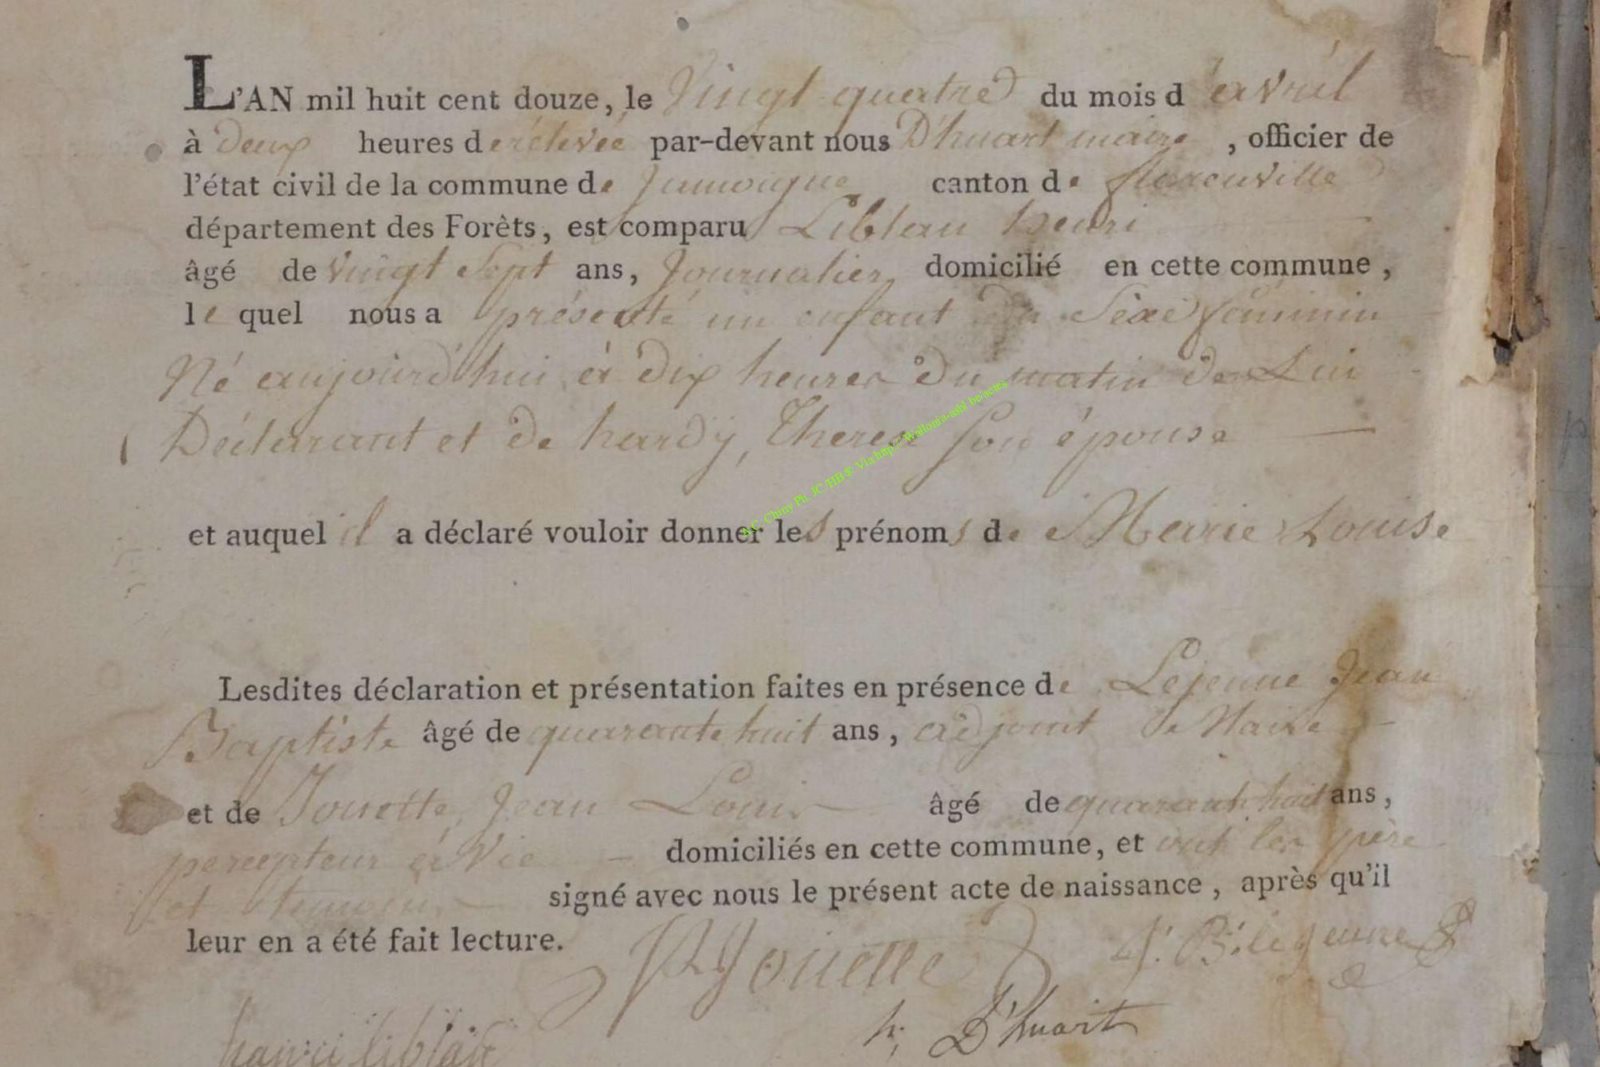 L'AN mil huit cent douze, le Vingt quatre du mois d'avril
à deux heures de rélevée par-devant nous D'huart maire, officier de
l'état civil de la commune de Jamoigne canton de florenville
département des Forèts, est comparu Liblan henri
âgé de vingt Sept ans, Journalier domicilié en cette commune,
le quel nous a présenté un enfant du Sexe feminin
Né aujourd'hui à dix heures du matin de Lui
Déclarant et de hardÿ, Therese Son épouse
A.C. Chiny Ph. JC HB & Via http://
et auquel il a déclaré vouloir donner les prénoms de Marie Louise
Lesdites déclaration et présentation faites en présence de Lejeune Jean
Baptiste âgé de quarante huit ans, adjoint de Maire
et de Jouette, Jean Louis âgé de quarante huit ans,
percepteur à Vie domiciliés en cette commune, et ont les père
et temoins signé avec nous le présent acte de naissance, après qu'il
leur en a été fait lecture.
Jouette J. B. lejeune
h, D'huart
henri liblan